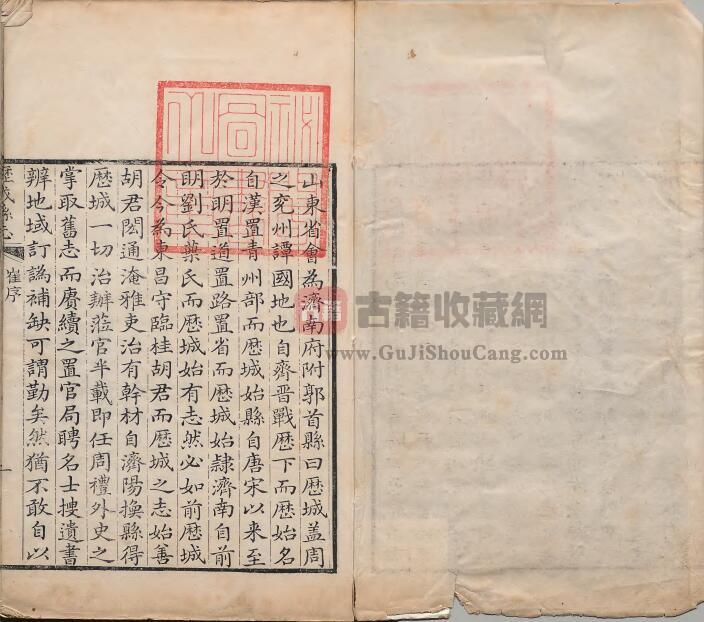 山東省會為濟南府附郭首縣曰歷城蓋周
之兖州譚國地也自齊晋戰歷下而歷始名
自漢置青州部而歷城始縣自唐宋以来至
於明置道置路置省而歷城始隷濟南自前
明劉氏葉氏而歷城始有志然必如前歷城
令今為東昌守臨桂胡君而歷城之志始善
胡君閎通淹雅吏治有幹材自濟陽換縣得
歷城一切治辦蒞官半載即任周禮外史之
掌取舊志而賡續之置官局聘名士搜遺書
辨地域訂譌補缺可謂勤矣然猶不敢自以
歷城縣志
崔序
一
古籍收藏網
www.GuJiShouCang.com